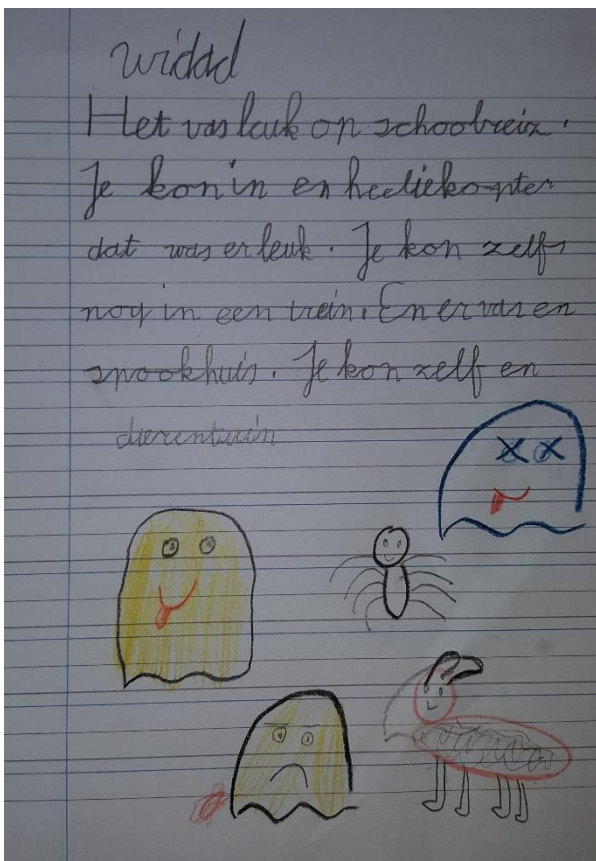 widad
Het was leuk op schoolreis.
Je kon in en heeliekopter
dat was er leuk. Je kon zelfs
nog in een trein. En er was en
spookhuis. Je kon zelf en
dierentuin